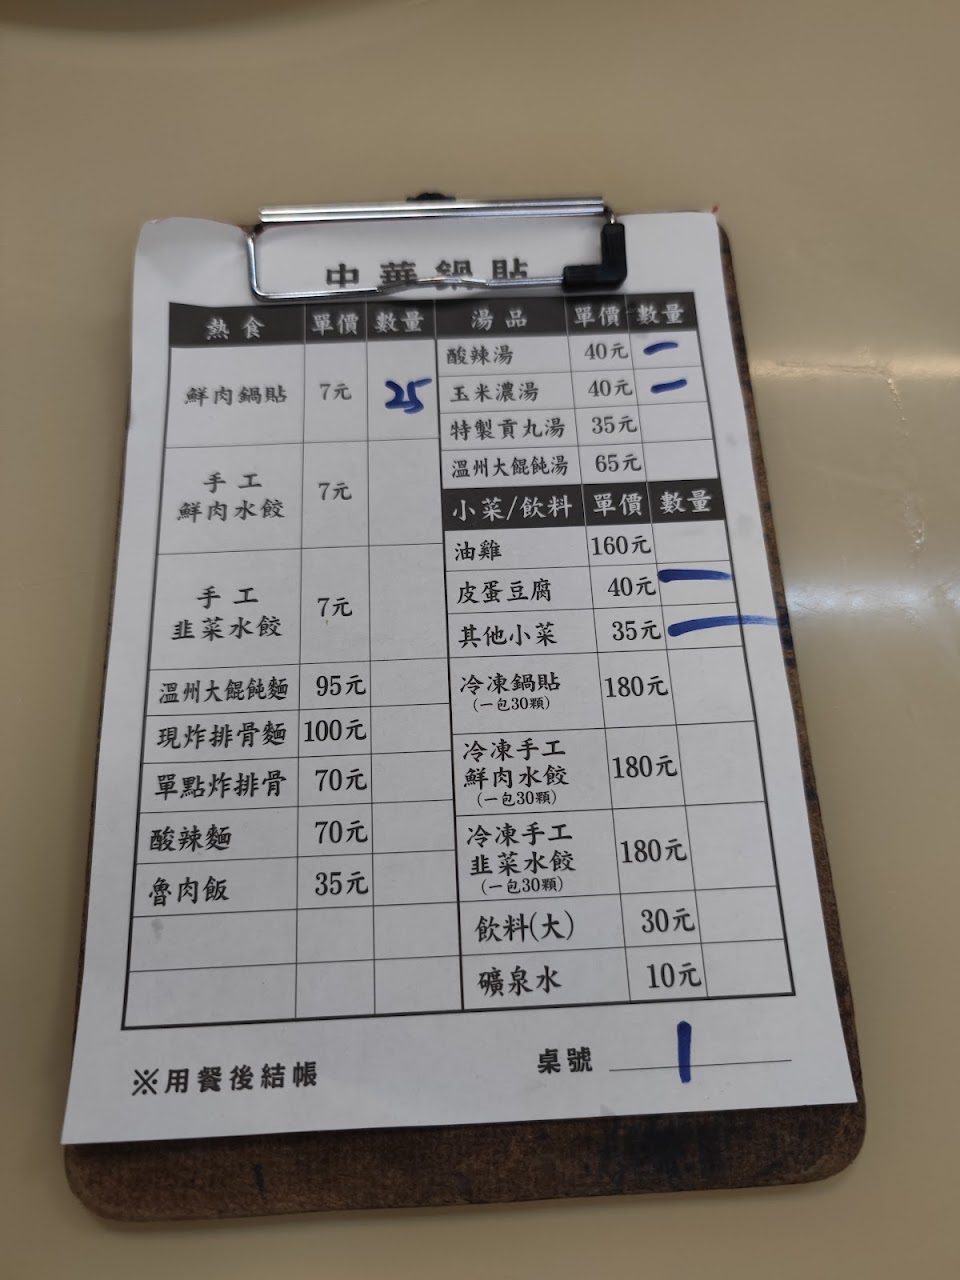 中華鍋貼
熱食 單價 數量
鮮肉鍋貼 7元 25
手工
鮮肉水餃 7元
手工
韭菜水餃 7元
溫州大餛飩麵 95元
現炸排骨麵 100元
單點炸排骨 70元
酸辣麵 70元
魯肉飯 35元
湯品 單價 數量
酸辣湯 40元 一
玉米濃湯 40元 一
特製貢丸湯 35元
溫州大餛飩湯 65元
小菜/飲料 單價 數量
油雞 160元
皮蛋豆腐 40元 一
其他小菜 35元 一
冷凍鍋貼 180元
(一包30顆)
冷凍手工
鮮肉水餃 180元
(一包30顆)
冷凍手工
韭菜水餃 180元
(一包30顆)
飲料(大) 30元
礦泉水 10元
※用餐後結帳
桌號 1